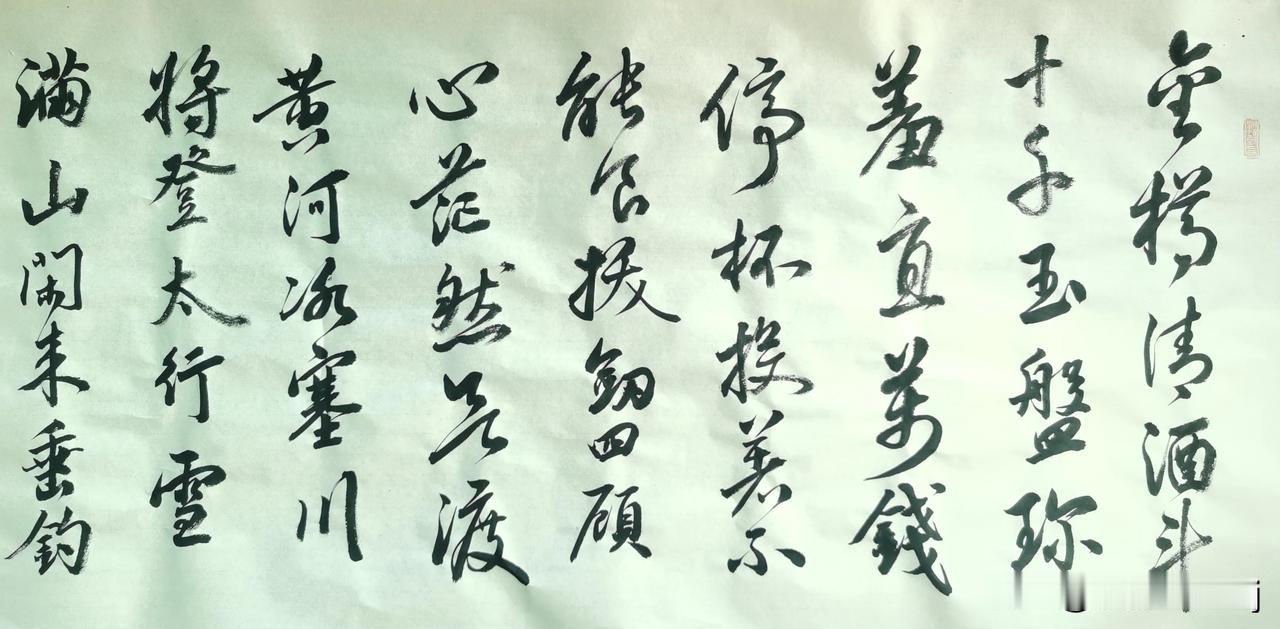 金樽清酒斗
十千玉盤珍
羞直萬錢
停杯投箸不
能食拔劍四顧
心茫然欲渡
黄河冰塞川
將登太行雪
滿山閒来垂釣